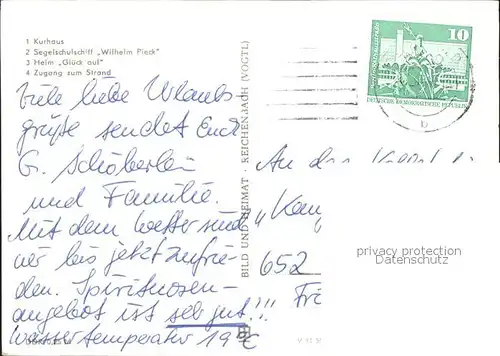 1 Kurhaus
2 Segelschulschiff „Wilhelm Pieck"
3 Heim „Glück auf"
4 Zugang zum Strand
Viele liebe Urlaubs-
grüße sendet Euch
G. Schöberlein
und Familie.
Mit dem Wetter sind
wir bis jetzt zufrie-
den. Spirituosen-
angebot ist sehr gut!!!
Wassertemperatur 19°C
BILD UND HEIMAT · REICHENBACH (VOGTL)
10
DEUTSCHE DEMOKRATISCHE REPUBLIK
b
An das
652
privacy protection
Datenschutz